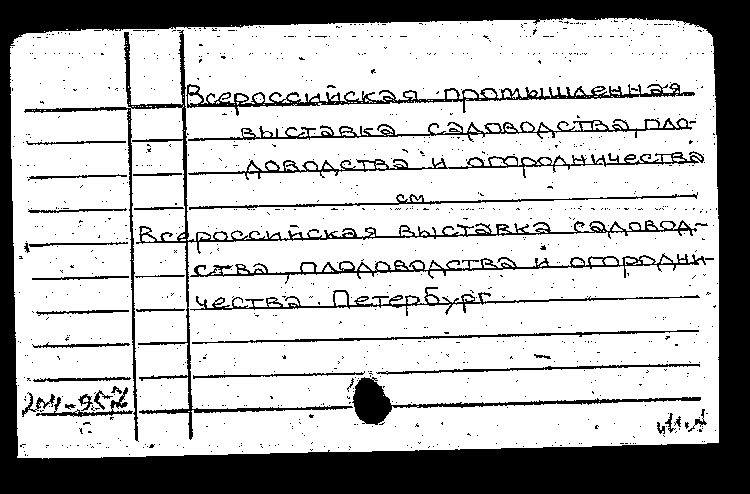 Всероссийская промышленная
выставка садоводства, пло-
доводства и огородничества
см
Всероссийская выставка садовод-
ства, плодоводства и огородни-
чества. Петербург